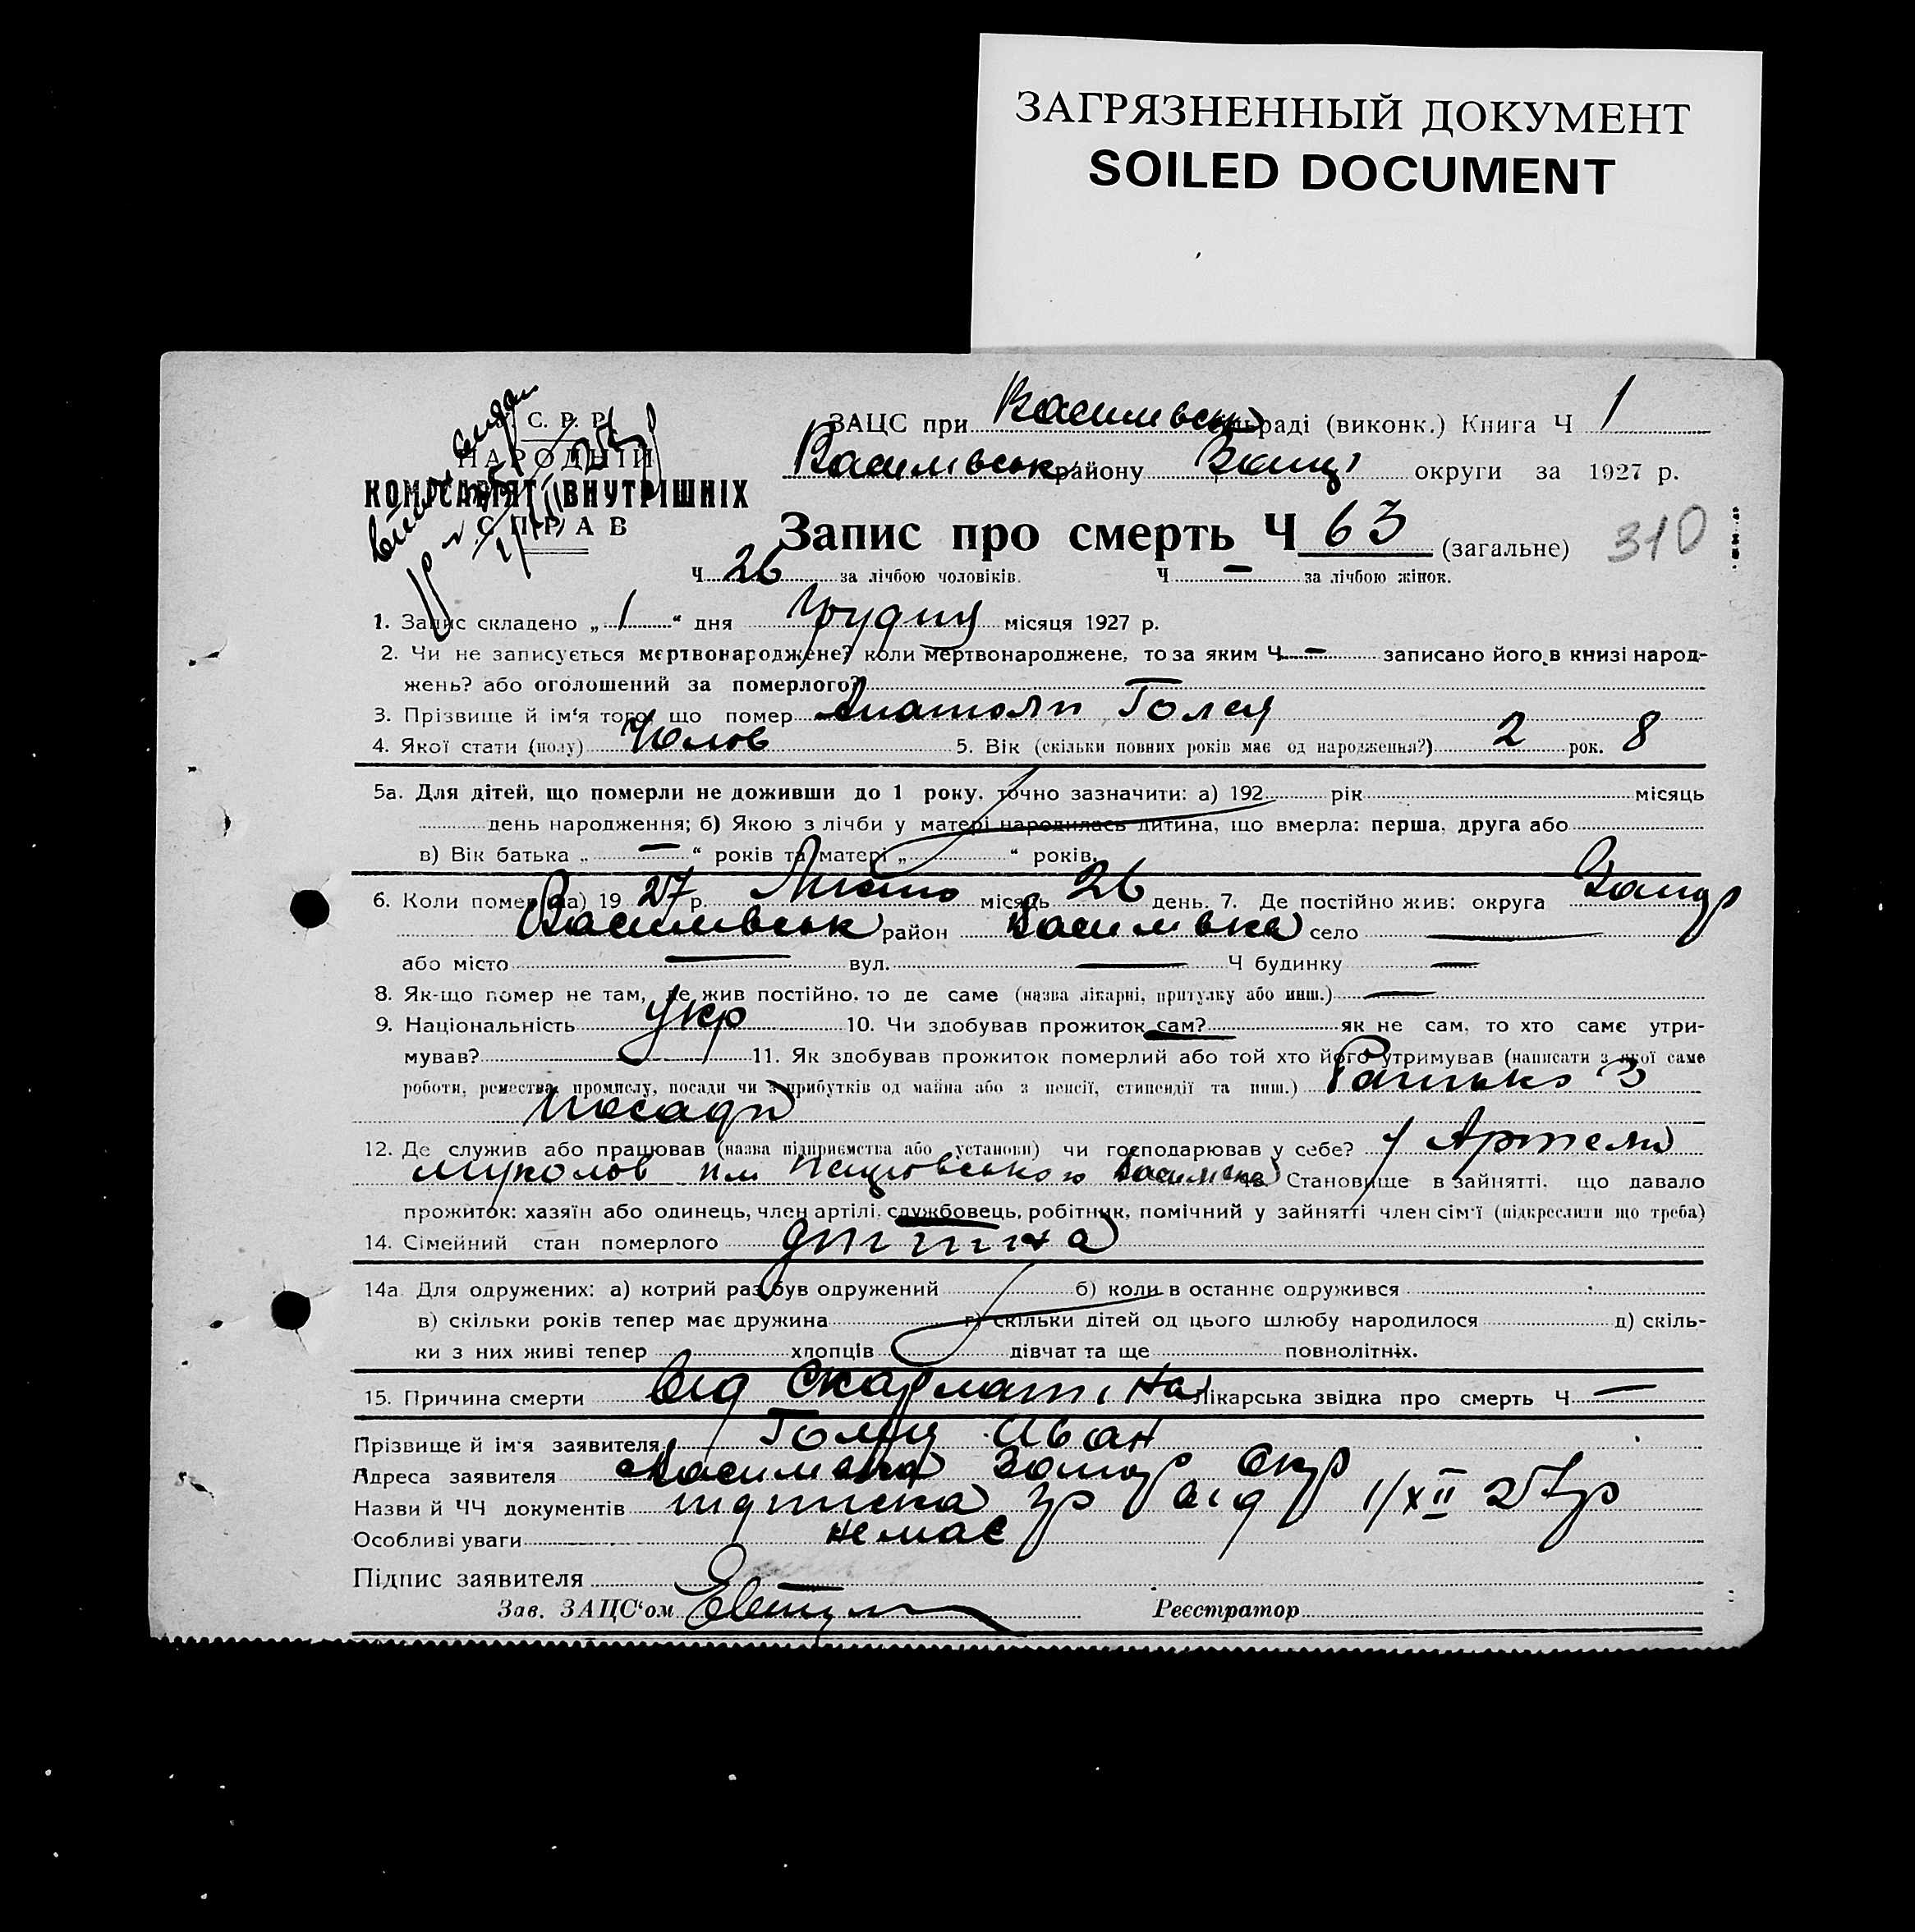 ЗАГРЯЗНЕННЫЙ ДОКУМЕНТ
SOILED DOCUMENT
С. Р. Р.
НАРОДНІЙ
КОМІСАРІЯТ ВНУТРІШНІХ
СПРАВ
ЗАЦС при Василівськ раді (виконк.) Книга Ч 1
Василівськ району Запор округи за 1927 р.
Запис про смерть Ч 63 (загальне) 310
Ч 26 за лічбою чоловіків. Ч — за лічбою жінок.
1. Запис складено „ 1 “ дня Грудня місяця 1927 р.
2. Чи не записується мертвонароджене? коли мертвонароджене, то за яким Ч — записано його в книзі народ-
жень? або оголошений за померлого? —
3. Прізвище й ім'я того, що помер Анатолій Голуя
4. Якої стати (полу) Чолов 5. Вік (скільки повних років має од народження?) 2 рок. 8
5а. Для дітей, що померли не доживши до 1 року, точно зазначити: а) 192 рік місяць
день народження; б) Якою з лічби у матері народилась дитина, що вмерла: перша, друга або
в) Вік батька „ — “ років та матері „ “ років.
6. Коли помер(ла) 19 27 р. Листо місяць 26 день. 7. Де постійно жив: округа Запор
Василівськ район Василівка село —
або місто — вул. — Ч будинку —
8. Як-що помер не там, де жив постійно, то де саме (назва лікарні, притулку або инш.) —
9. Національність Укр 10. Чи здобував прожиток сам? як не сам, то хто саме утри-
мував? 11. Як здобував прожиток померлий або той хто його утримував (написати з якої саме
роботи, ремества, промислу, посади чи з прибутків од майна або з пенсії, стипендії та инш.) Батько З
посади
12. Де служив або працював (назва підприємства або установи) чи господарював у себе? У Артелі
їм Василівка Становище в зайнятті, що давало
прожиток: хазяїн або одинець, член артілі, службовець, робітник, помічний у зайнятті член сім'ї (підкреслити що треба)
14. Сімейний стан померлого дитина
14а Для одружених: а) котрий раз був одружений б) коли в останнє одружився
в) скільки років тепер має дружина г) скільки дітей од цього шлюбу народилося д) скіль-
ки з них живі тепер хлопців дівчат та ще повнолітніх.
15. Причина смерти Від Скарлатіна Лікарська звідка про смерть Ч —
Прізвище й ім'я заявителя Іван
Адреса заявителя Василівка Запор Окр
Назви й ЧЧ документів підписка гр від 1/XII 27р
Особливі уваги немає
Підпис заявителя
Зав. ЗАЦС'ом Реєстратор